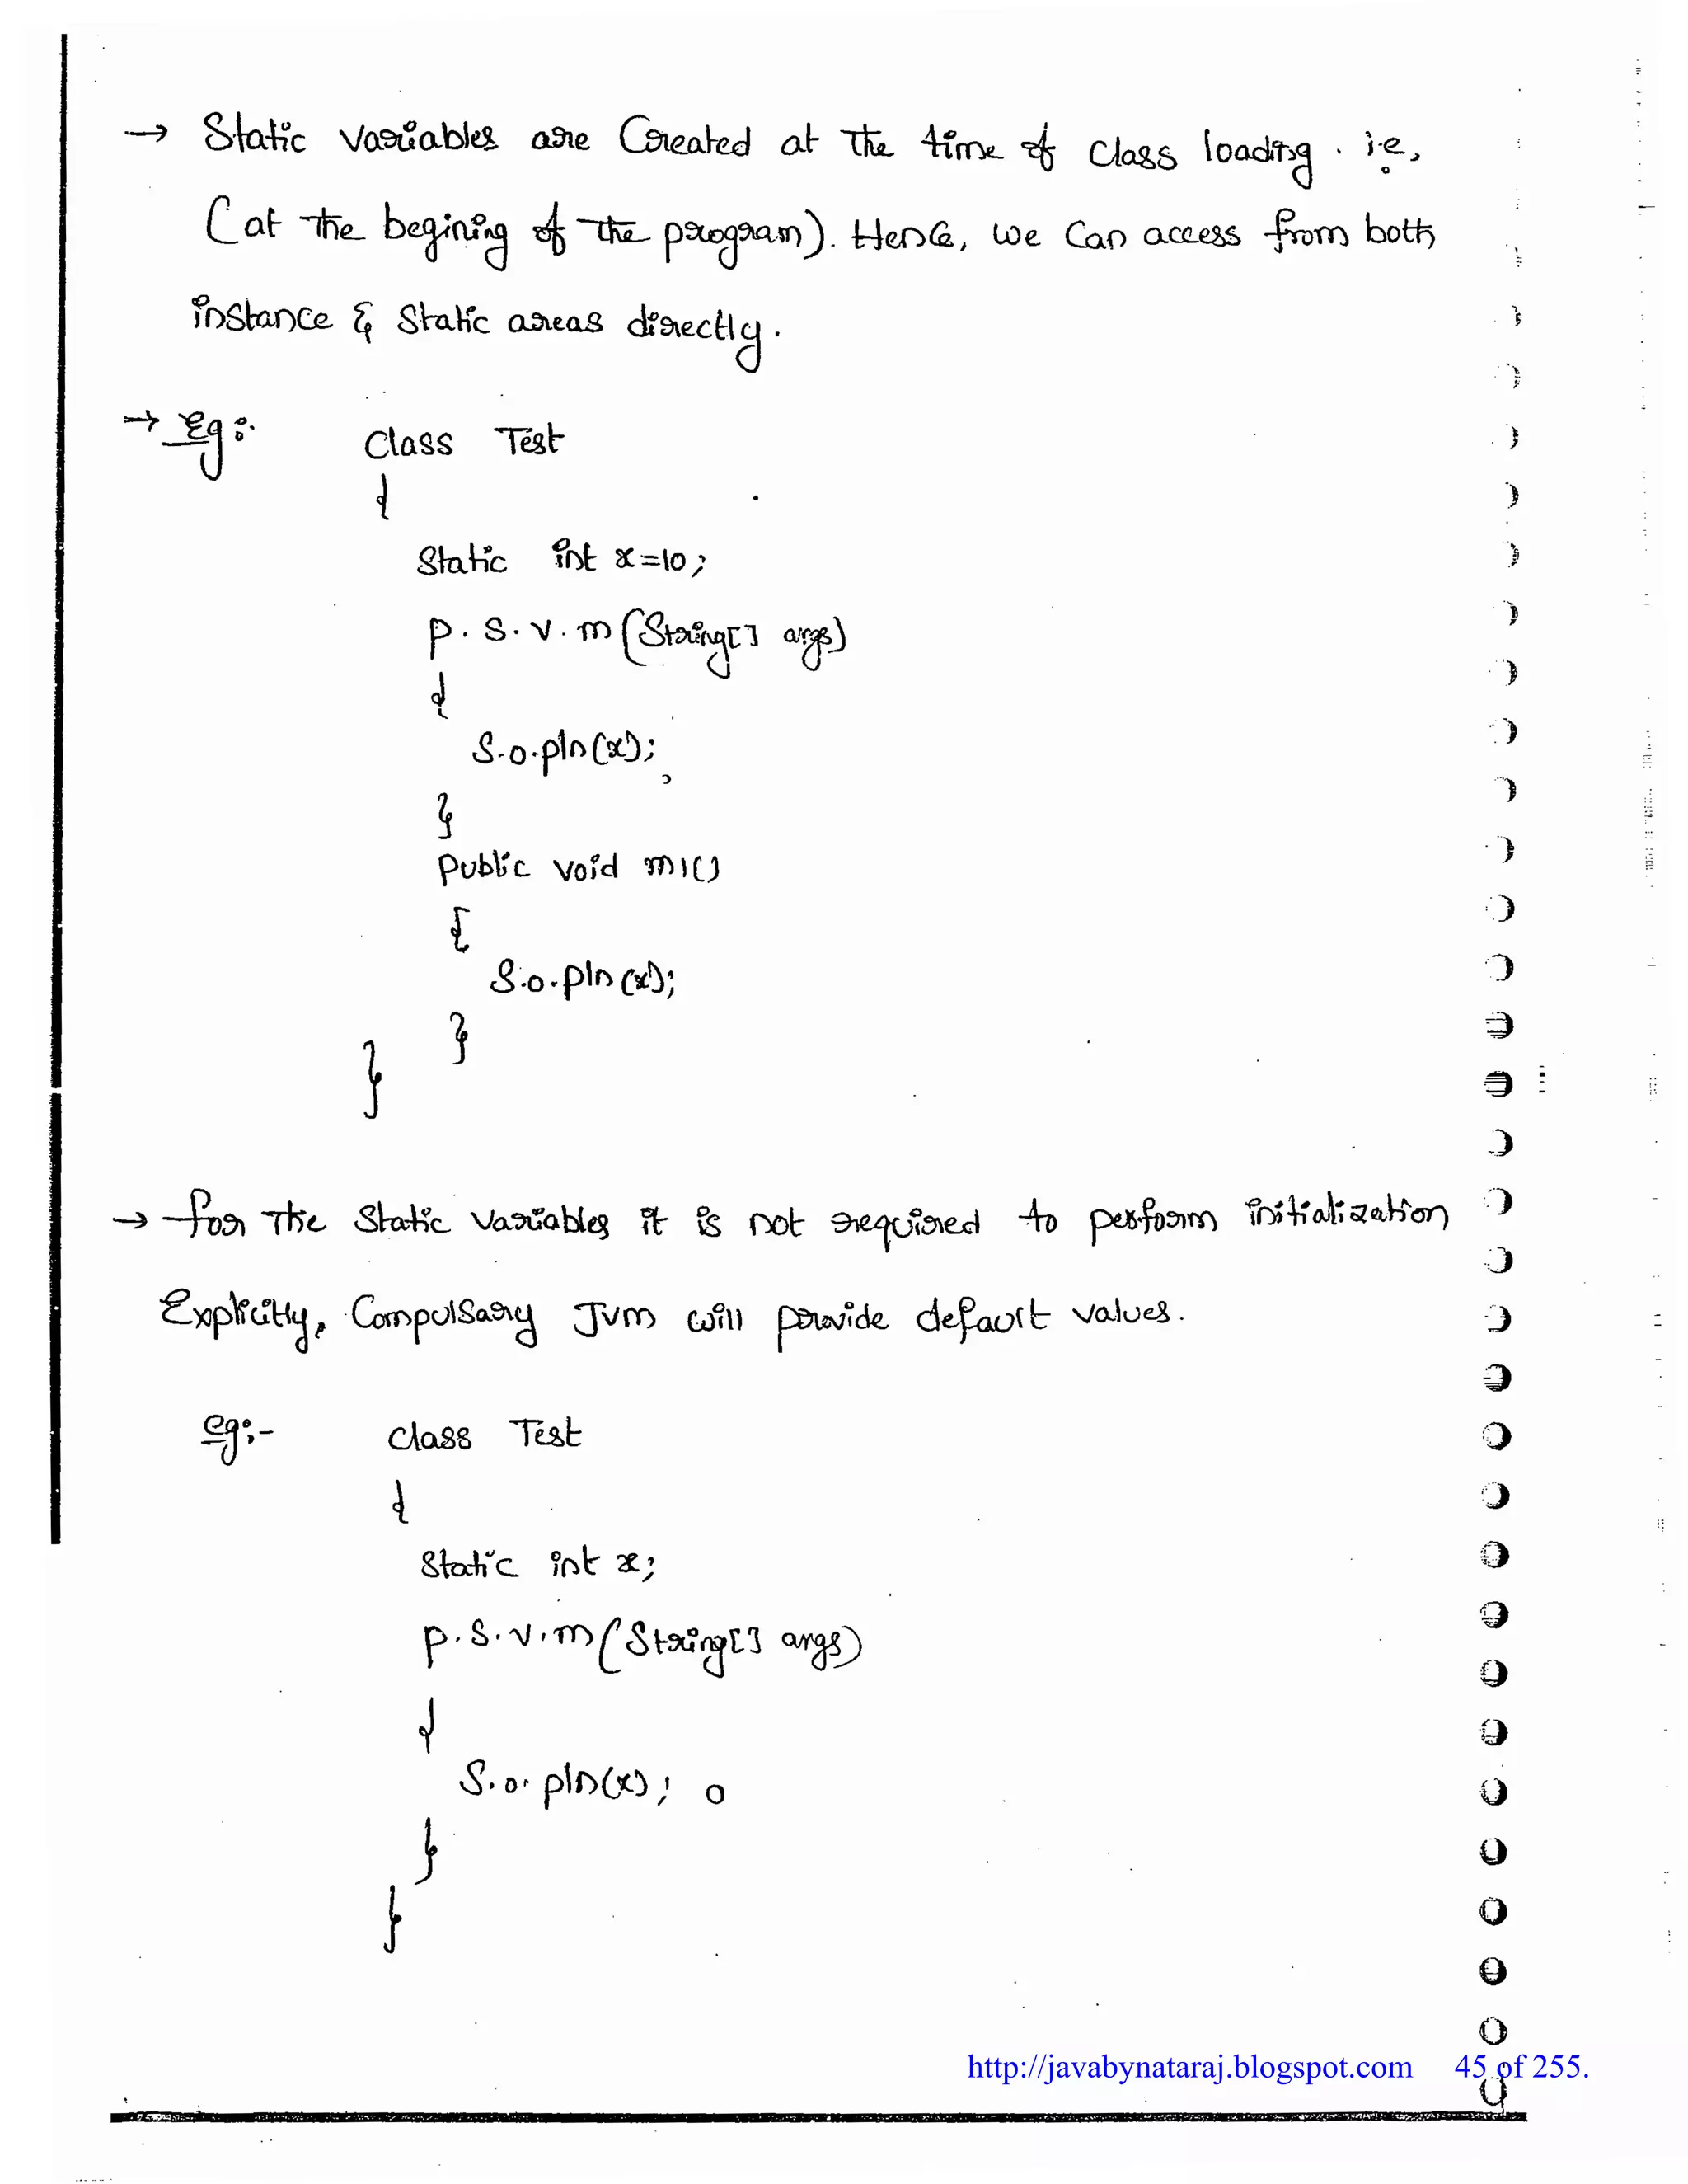 → Static variables are Created at the time of Class loading . i.e,
(at the begining of the program). Hence, we can access from both
instance & Static areas directly.
→ Eg:-
Class Test
{
Static int x=10;
P.S.V.m(String[] args)
{
S.o.pln(x);
}
Public void m1()
{
S.o.pln(x);
}
}
→ for the Static variables it is not required to perform initialization
Explicitly, Compulsary JVM will provide default values.
eg:-
class Test
{
Static int x;
P.S.V.m(String[] args)
{
S.o.pln(x); 0
}
}
http://javabynataraj.blogspot.com 45 of 255.